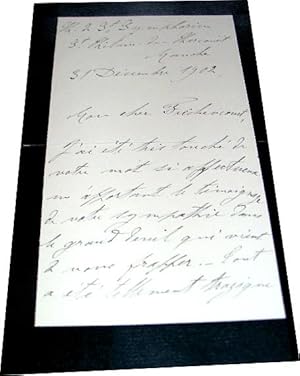 St Hilaire du Harcouët
Manche
31 Décembre 1902.
Mon cher
J'ai été très touché de
votre mot si affectueux
m'apportant le témoignage
de votre sympathie dans
le grand deuil qui vient
de nous frapper – Tout
a été tellement tragique